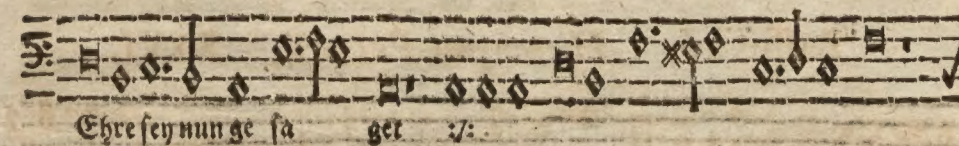 Ehre sey nun ge sa get :/: